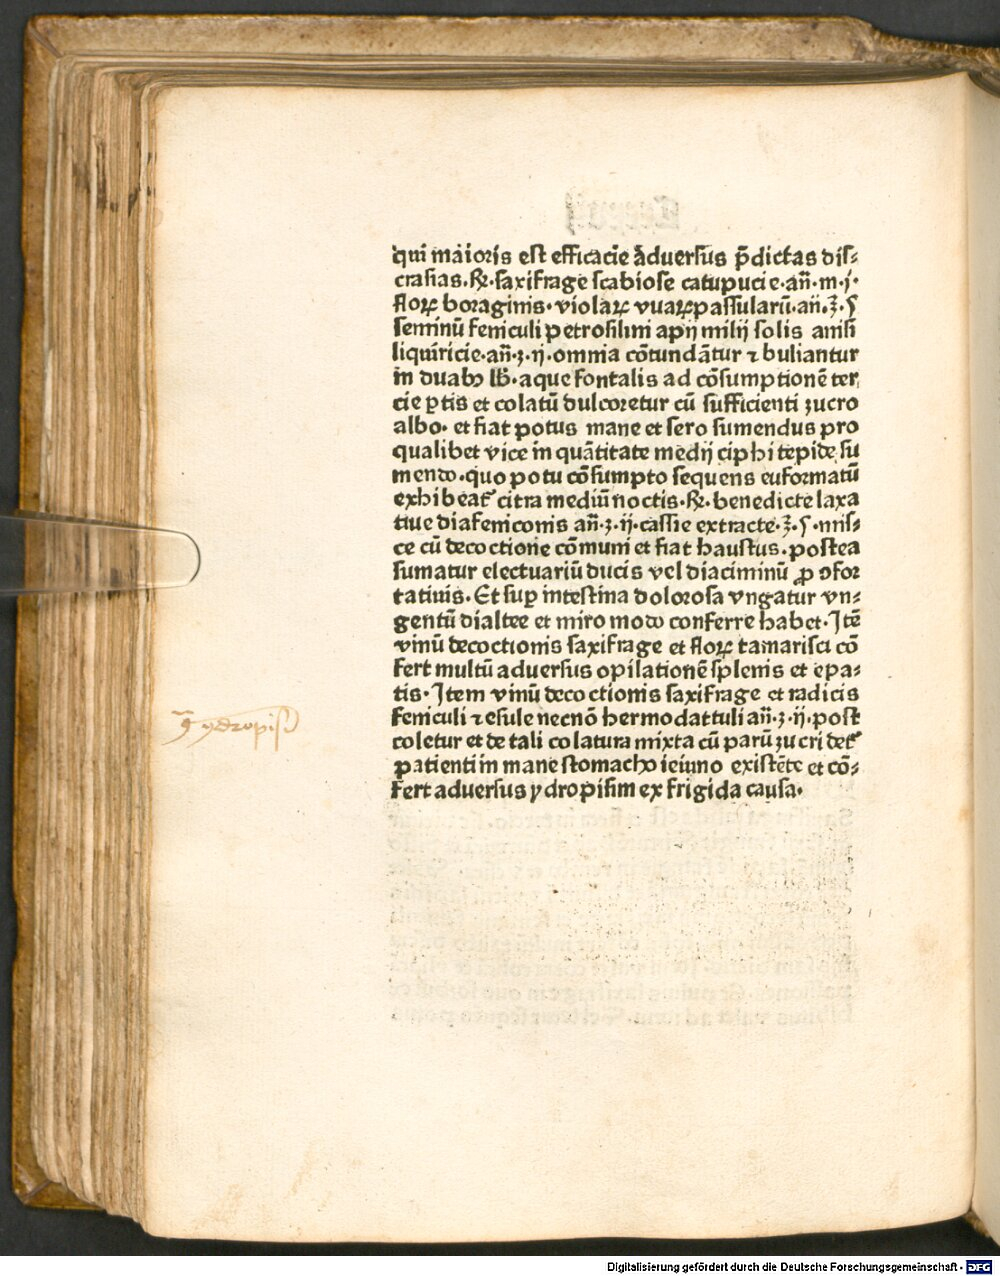 qui maioris est efficacie adversus p̄dictas dis⸗
crasias.℞.saxifrage scabiose catupucie.an̄.m.j.
floꝝ boraginis.violaꝝ vuaꝝpassularū.an̄.ʒ.ſ
seminū feniculi petrosilini apij milij solis anisi
liquiricie.an̄.ʒ.ij.omnia cōtundātur ⁊ buliantur
in duabꝫ lb̄.aque fontalis ad cōsumptionē ter
cie ꝑtis et colatū dulcoretur cū sufficienti zucro
albo. et fiat potus mane et sero sumendus pro
qualibet vice in quātitate medij ciphi tepide su
mendo.quo potu cōsumpto sequens euformatū
exhibeat᷑ citra mediū noctis.℞.benedicte laxa
tiue diafeniconis an̄.ʒ.ij.cassie extracte.ʒ.ſ.mis⸗
ce cū decoctione cōmuni et fiat haustus.postea
sumatur electuariū ducis vel diaciminū ꝓ ɔfor
tatiuis. Et suꝑ intestina dolorosa vngatur vn⸗
gentū dialtee et miro modo conferre habet.Itē
vinū decoctionis saxifrage et floꝝ tamarisci cō
fert multū adversus opilationē splenis et epa⸗
tis.Item vinū decoctionis saxifrage et radicis
feniculi ⁊ esule necnō hermodattuli an̄.ʒ.ij.post
coletur et de tali colatura mixta cū parū zucri det᷑
patienti in mane stomacho ieiuno existēte et cō⸗
fert adversus ydropisim ex frigida causa.
ydropisi
Digitalisierung gefördert durch die Deutsche Forschungsgemeinschaft - DFG